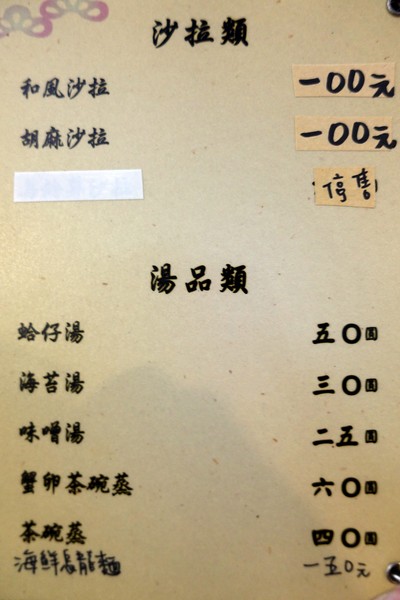 沙拉類
和風沙拉 一00元
胡麻沙拉 一00元
停售
湯品類
蛤仔湯 五0圓
海苔湯 三0圓
味噌湯 二五圓
蟹卵茶碗蒸 六0圓
茶碗蒸 四0圓
海鮮烏龍麵 一五0元